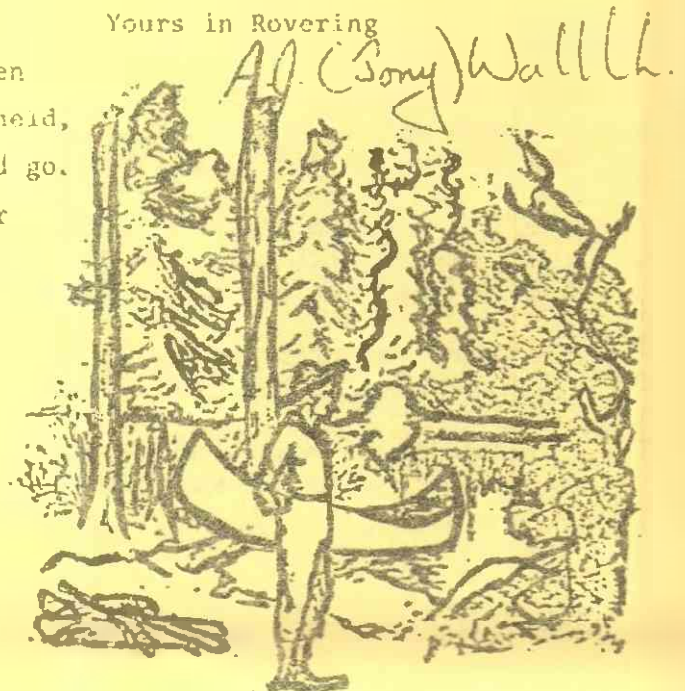 Yours in Rovering
A.J. (Tony)
en
held,
d go.
r